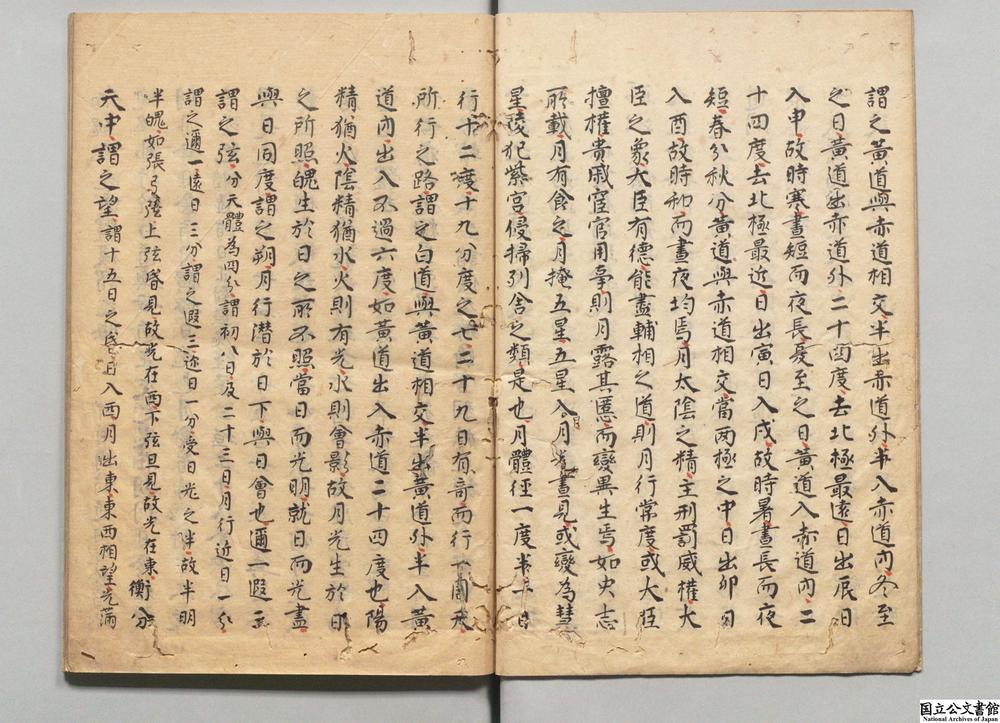 謂之黃道與赤道相交半出赤道外半入赤道內冬至
之日黃道出赤道外二十四度去北極最遠日出辰日
入申故時寒晝短而夜長夏至之日黃道入赤道內二
十四度去北極最近日出寅日入戌故時暑晝長而夜
短春分秋分黃道與赤道相交當兩極之中日出卯日
入酉故時和而晝夜均焉月太陰之精主刑罰威權大
臣之象大臣有德能盡輔相之道則月行常度或大臣
擅權貴戚宦官用事則月露其慝而變異生焉如史志
所載月有食之月掩五星五星入月月光晝見或變為彗
星陵犯紫宮侵掃列舍之類是也月體徑一度半一日
行十二度十九分度之七二十九日有奇而行一周天
所行之路謂之白道與黃道相交半出黃道外半入黃
道內出入不過六度如黃道出入赤道二十四度也陽
精猶火陰精猶水火則有光水則會影故月光生於日
之所照魄生於日之所不照當日而光明就日而光盡
與日同度謂之朔月行潛於日下與日會也邇一遐三
謂之弦分天體為四分謂初八日及二十三日月行近日一分
謂之邇一遠日三分謂之遐三迩日一分受日光之半故半明
半魄如張弓弦上弦昏見故光在西下弦旦見故光在東衡分
天中謂之望謂十五日之昏日入西月出東東西相望光滿
国立公文書館
National Archives of Japan